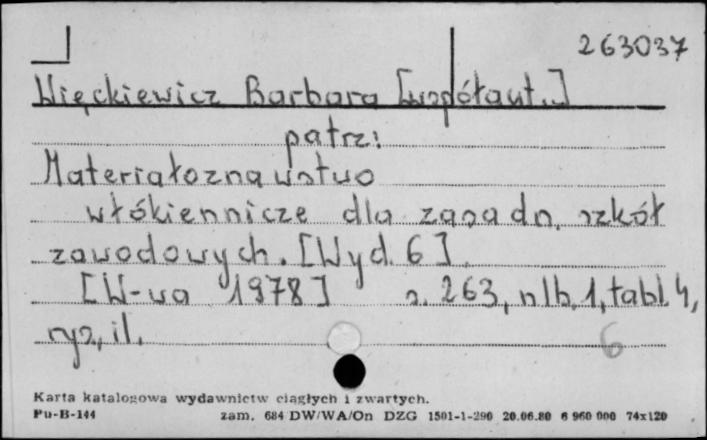 263037
Więckiewicz Barbara [współaut.]
patrz:
Materiałoznawstwo
włókiennicze dla zasadn. szkół
zawodowych. [Wyd. 6]
[W-wa 1978] s. 263, nlb. 1, tabl. 4,
rys., il.
6
Karta katalogowa wydawnictw ciągłych i zwartych.
Pu-B-144 zam. 684 DW/WA/On DZG 1501-1-290 20.06.80 6 960 000 74x120